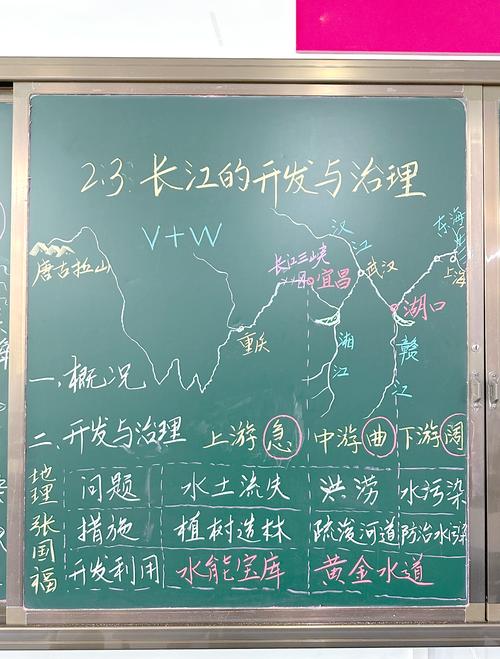 2.3 长江的开发与治理
V+W
唐古拉山
重庆
长江三峡
宜昌
汉江
武汉
湘江
湖口
赣江
东海
上海
一、概况
二、开发与治理 上游 急 中游 曲 下游 阔
问题 水土流失 洪涝 水污染
措施 植树造林 疏浚河道 防治水污染
开发利用 水能宝库 黄金水道
地理张国福